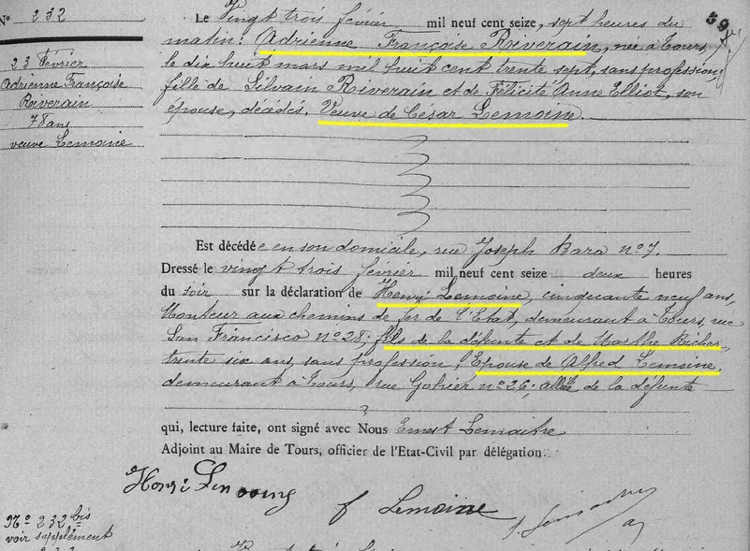 N° 232
23 février
Adrienne Françoise
Roiverain
78 ans
veuve Lemoine
59
Le Vingt trois février mil neuf cent seize, sept heures du
matin: Adrienne Françoise Roiverain, née à Tours
le dix huit mars mil huit cent trente sept, sans profession,
fille de Silvain Roiverain et de Félicité Anne Elliot, son
épouse, décédés. Veuve de César Lemoine.
Est décédée en son domicile, rue Joseph Bara n° 7.
Dressé le vingt trois février mil neuf cent seize deux heures
du soir sur la déclaration de Henri Lemoine, cinquante neuf ans,
Monteur aux chemins de fer de l'Etat, demeurant à Tours, rue
San Francisco n° 28; fils de la défunte et de Marthe Bicher,
trente six ans, sans profession, Epouse de Alfred Lemoine,
demeurant à Tours, rue Gohier n° 26; alliée de la défunte
qui, lecture faite, ont signé avec Nous Ernest Lemaitre
Adjoint au Maire de Tours, officier de l'Etat-Civil par délégation.
Henri Lemoine f Lemoine
N° 232 bis
voir supplément
233